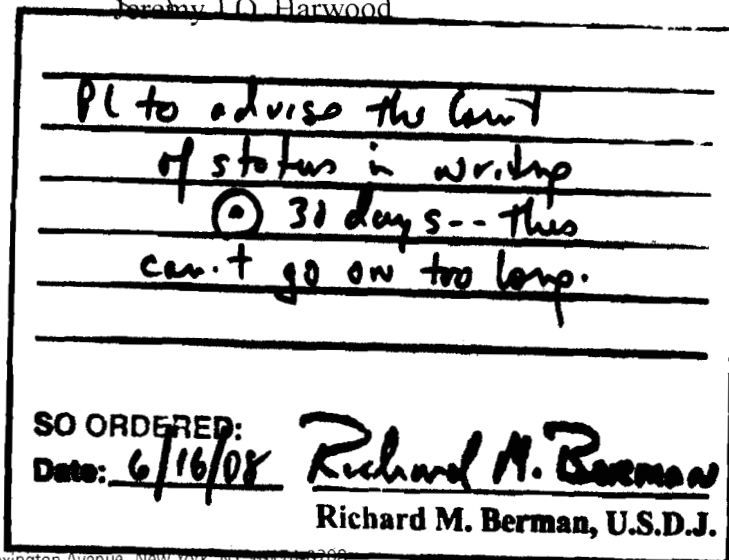 Jeremy J.O. Harwood
Pl to advise the Court
of status in writing
@ 30 days -- this
can't go on too long.
SO ORDERED:
Date: 6/16/08 Richard M. Berman
Richard M. Berman, U.S.D.J.
Lexington Avenue, New York